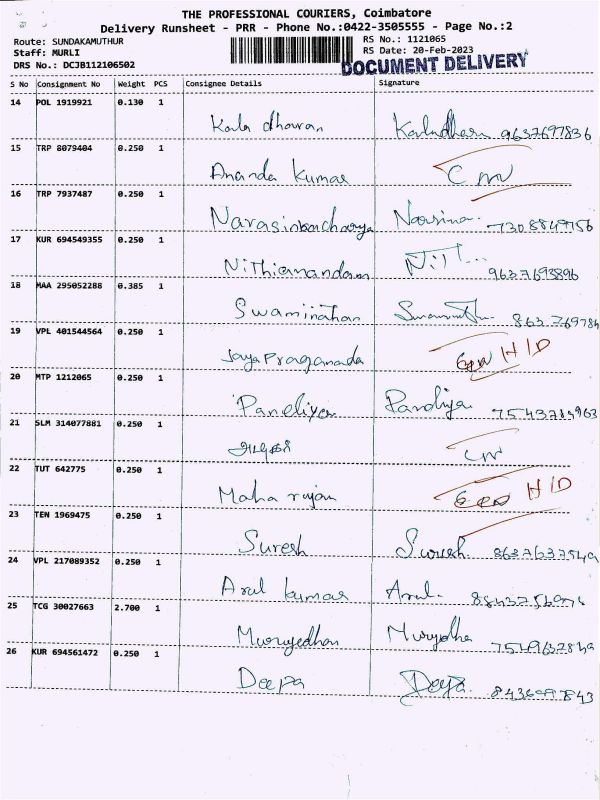 THE PROFESSIONAL COURIERS, Coimbatore
Delivery Runsheet - PRR - Phone No.:0422-3505555 - Page No.:2
Route: SUNDAKAMUTHUR RS No.: 1121065
Staff: MURLI RS Date: 20-Feb-2023
DRS No.: DCJB112106502 DOCUMENT DELIVERY
S No Consignment No Weight PCS Consignee Details Signature
14 POL 1919921 0.130 1
Kala dhavan 9637697836
15 TRP 8079404 0.250 1
Ananda Kumar
16 TRP 7937487 0.250 1
Narasimbacharya Narsima.
17 KUR 694549355 0.250 1
Nithianandam 9637693896
18 MAA 295052288 0.385 1
Swaminathan 863769784
19 VPL 401544564 0.250 1
Jaya Praganada H/D
20 MTP 1212065 0.250 1
Pandiyan Pandiya
21 SLM 314077881 0.250 1
22 TUT 642775 0.250 1
Maha rajan H/D
23 TEN 1969475 0.250 1
Suresh Suresh
24 VPL 217089352 0.250 1
Arul kumar Arul.
25 TCG 30027663 2.700 1
Murugedhan
26 KUR 694561472 0.250 1
Deepa